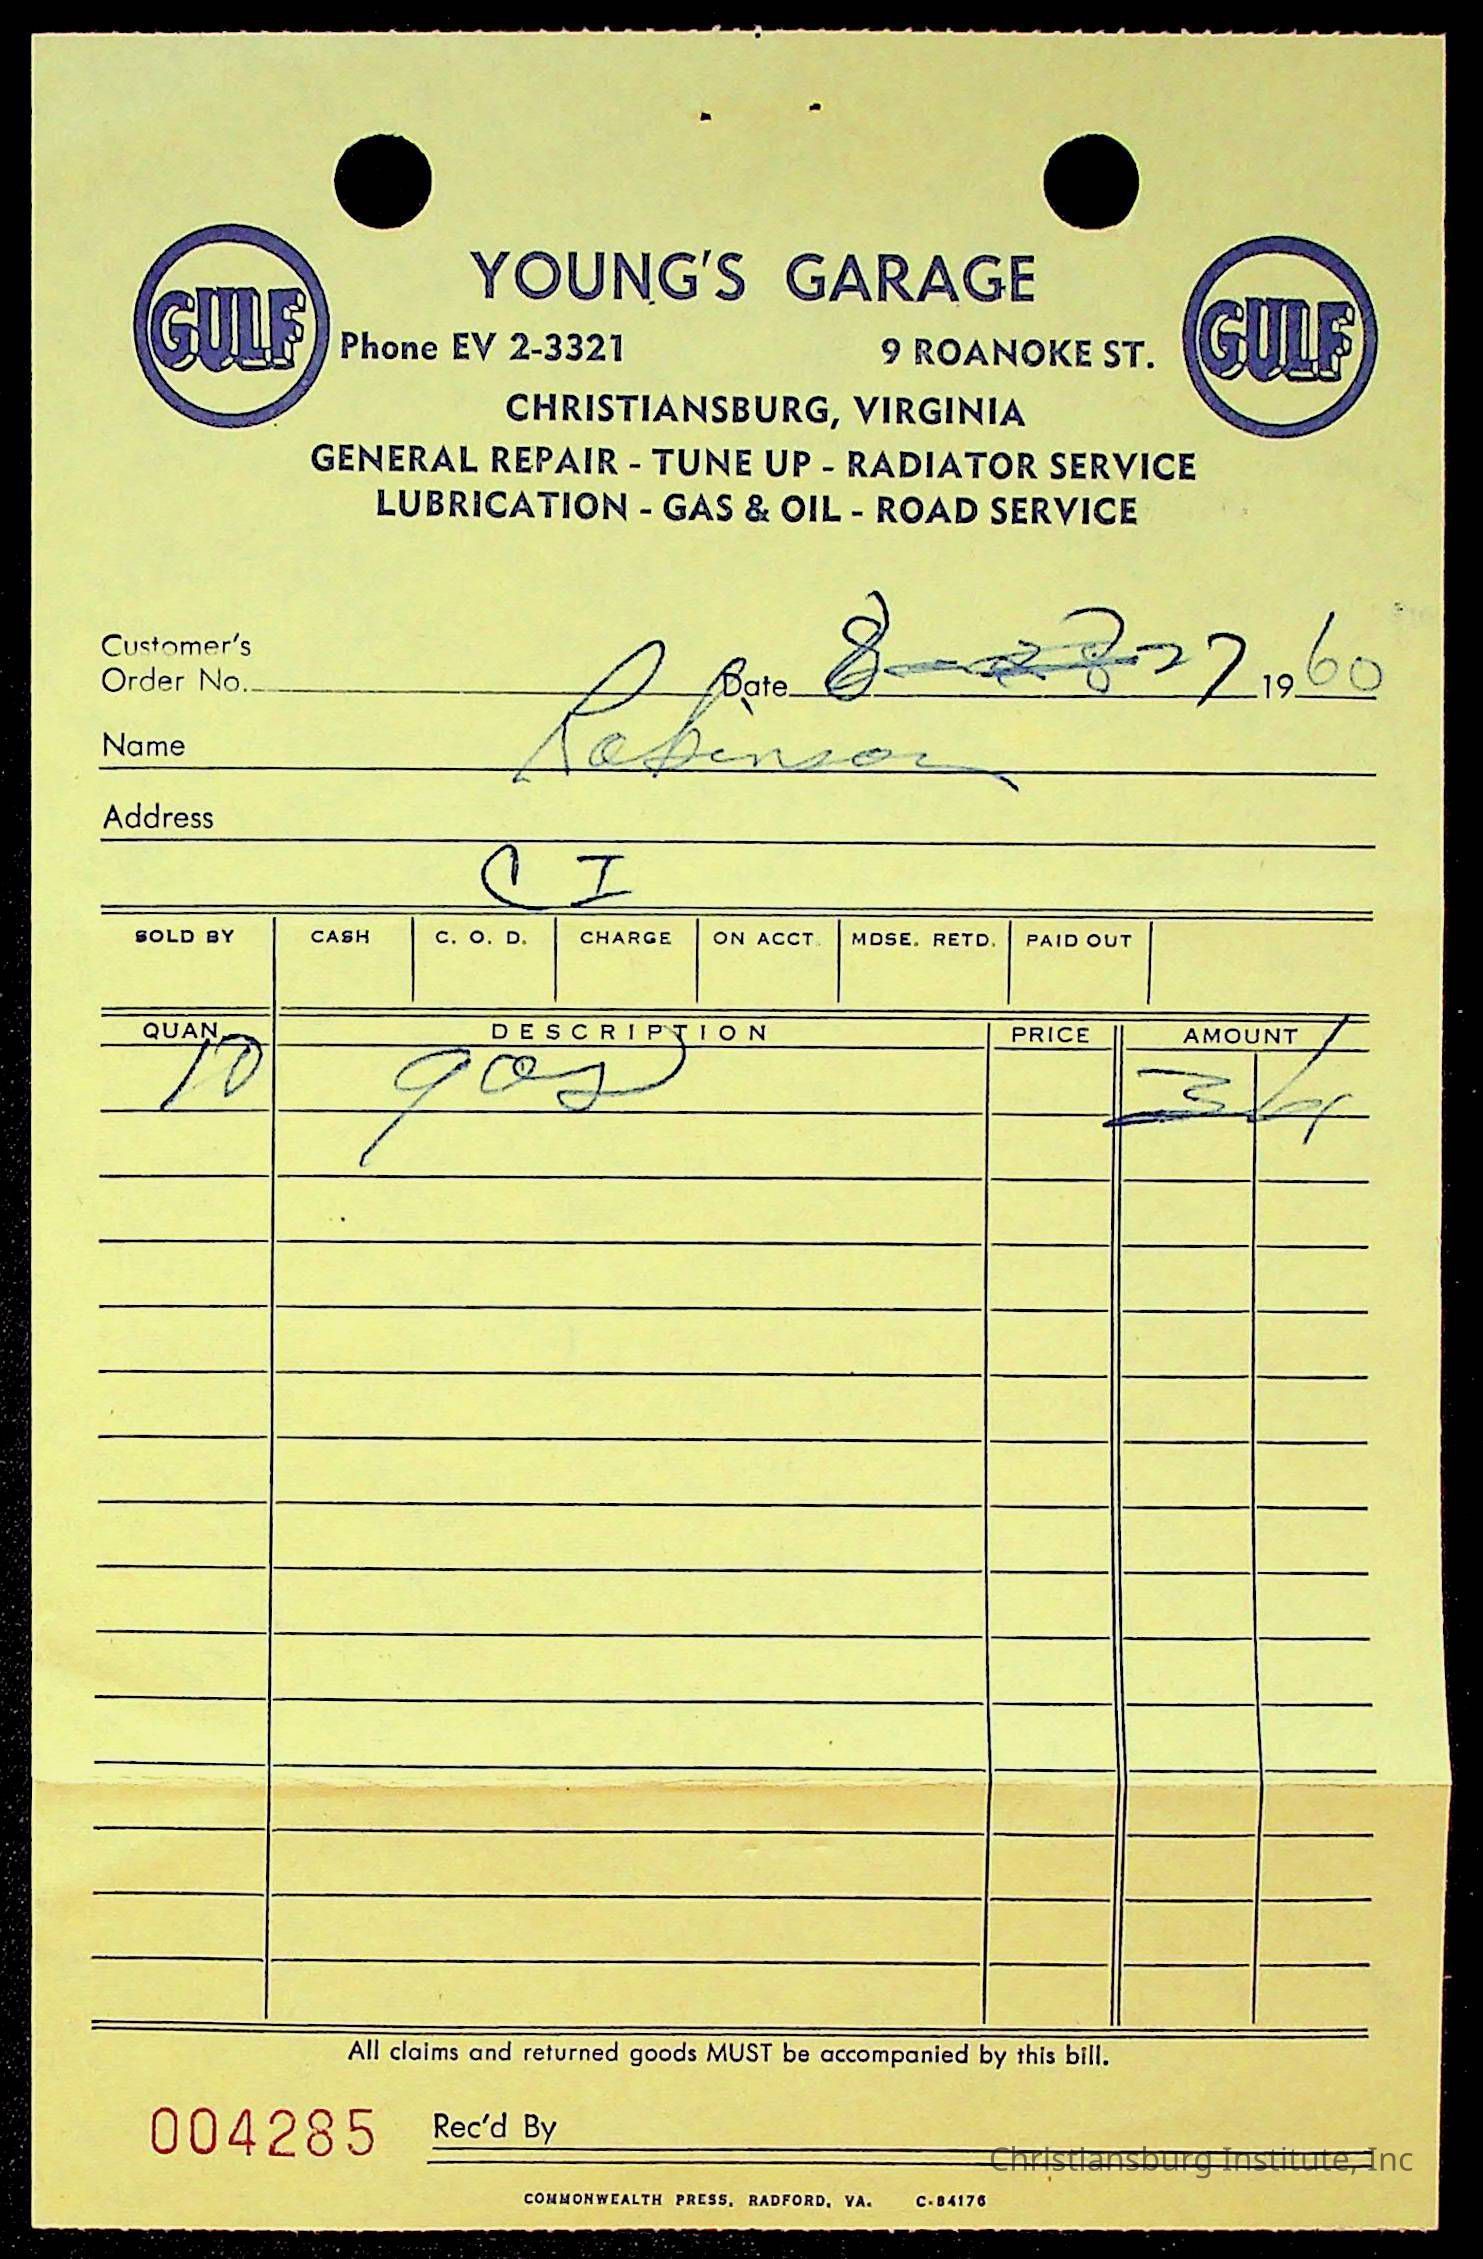 YOUNG'S GARAGE
GULF
GULF
Phone EV 2-3321 9 ROANOKE ST.
CHRISTIANSBURG, VIRGINIA
GENERAL REPAIR - TUNE UP - RADIATOR SERVICE
LUBRICATION - GAS & OIL - ROAD SERVICE
Customer's
Order No. Date 8- 27 1960
Name Robinson
Address
C I
SOLD BY CASH C. O. D. CHARGE ON ACCT. MDSE. RETD. PAID OUT
QUAN. DESCRIPTION PRICE AMOUNT
10 gas 3
All claims and returned goods MUST be accompanied by this bill.
004285 Rec'd By
Christiansburg Institute, Inc
COMMONWEALTH PRESS, RADFORD, VA. C-84176